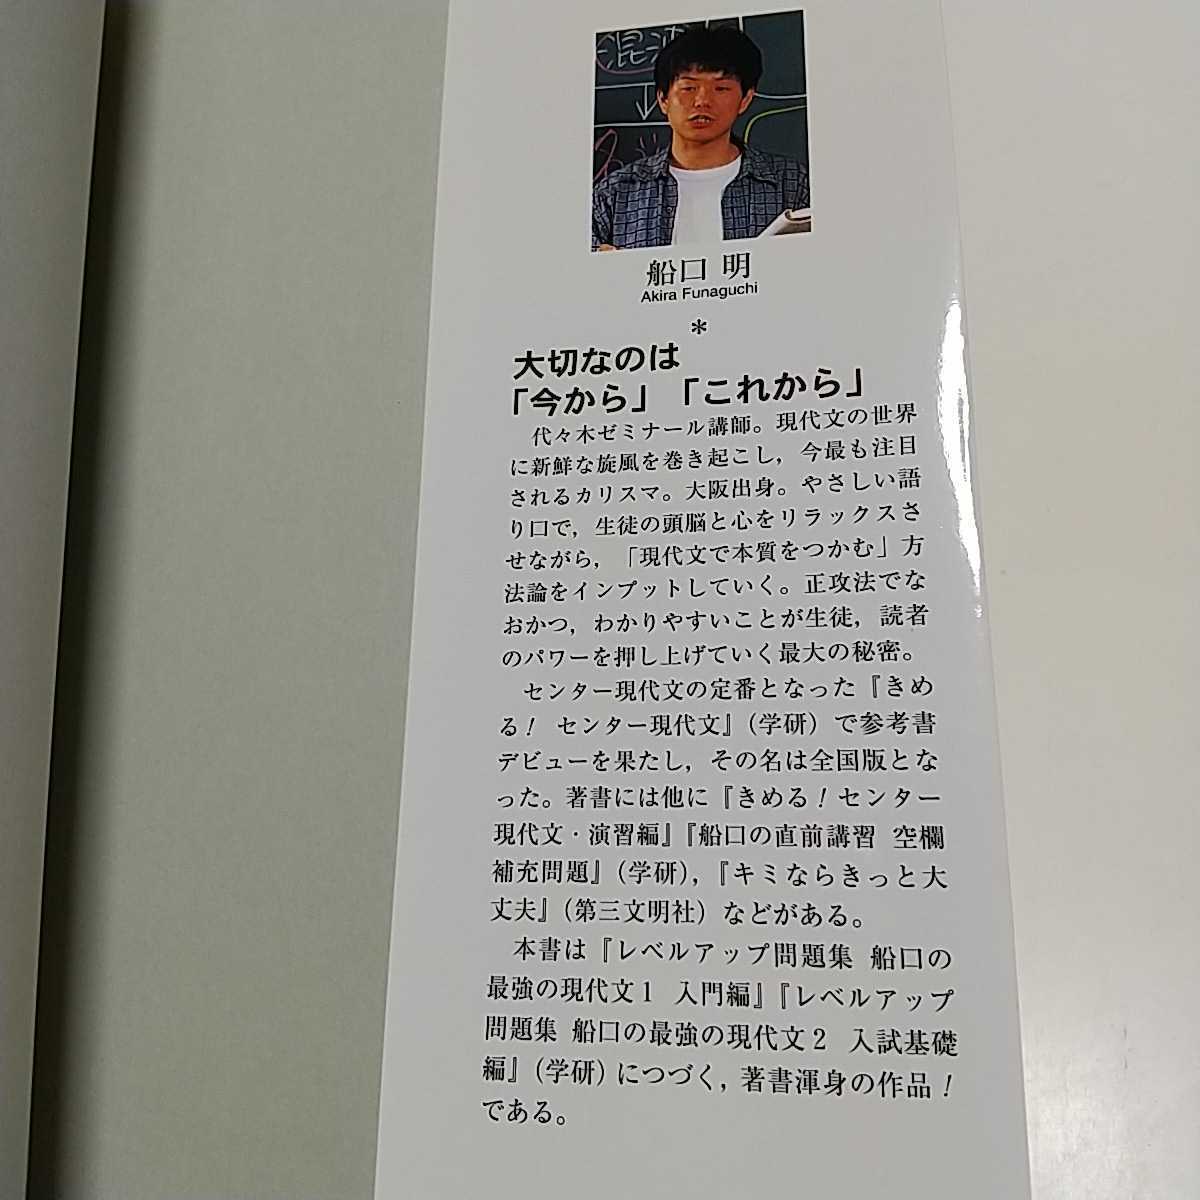 混沌
船口 明
Akira Funaguchi
*
大切なのは
「今から」「これから」
代々木ゼミナール講師。現代文の世界
に新鮮な旋風を巻き起こし，今最も注目
されるカリスマ。大阪出身。やさしい語
り口で，生徒の頭脳と心をリラックスさ
せながら，「現代文で本質をつかむ」方
法論をインプットしていく。正攻法でな
おかつ，わかりやすいことが生徒，読者
のパワーを押し上げていく最大の秘密。
センター現代文の定番となった『きめ
る！ センター現代文』（学研）で参考書
デビューを果たし，その名は全国版とな
った。著書には他に『きめる！センター
現代文・演習編』『船口の直前講習 空欄
補充問題』（学研），『キミならきっと大
丈夫』（第三文明社）などがある。
本書は『レベルアップ問題集 船口の
最強の現代文1 入門編』『レベルアップ
問題集 船口の最強の現代文2 入試基礎
編』（学研）につづく，著書渾身の作品！
である。